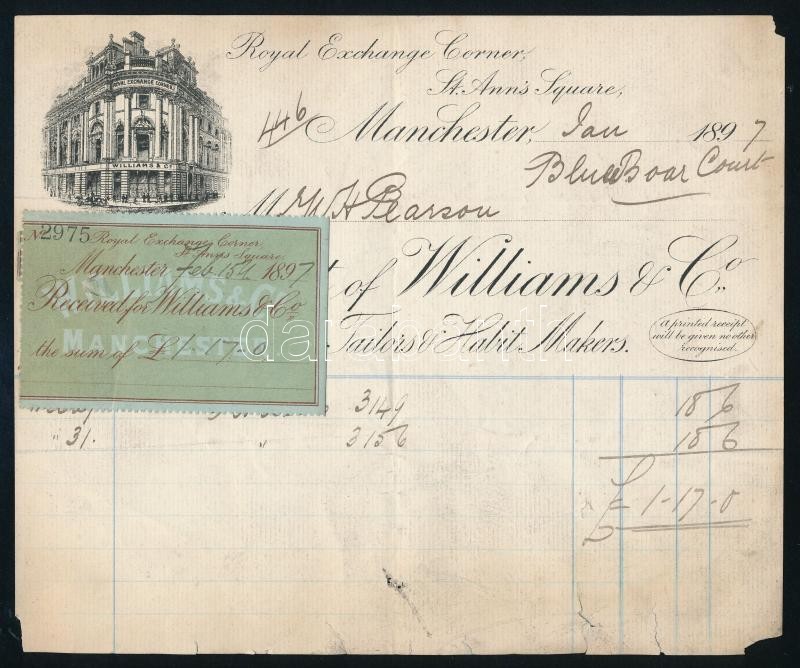 Royal Exchange Corner,
St. Ann's Square,
446 Manchester, Jan 1897
Blue Boar Court
Mr W H Pearson
ROYAL EXCHANGE CORNER
WILLIAMS & Co
t of Williams & Co.,
Tailors & Habit Makers.
a printed receipt
will be given no other
recognised.
No 2975 Royal Exchange Corner
St. Ann's Square
Manchester Feb 15th 1897
WILLIAMS & Co
Received for Williams & Co
MANCHESTER
the sum of £1-17-0
3149 18 6
" 31. " 3156 18 6
£ 1-17-0
darabanth